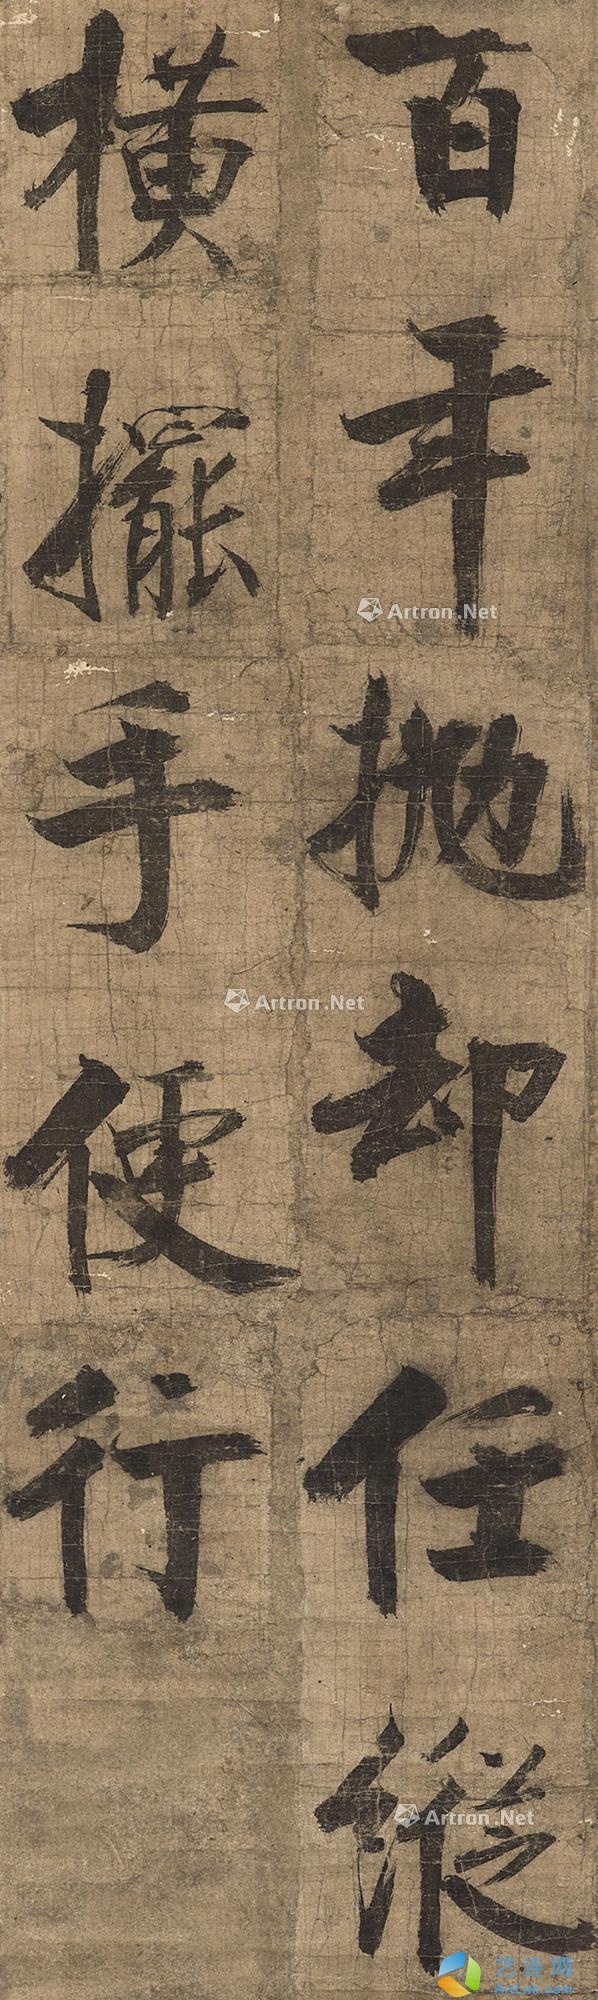 百年拋却任縱
橫擺手便行
Artron.Net
Artron.Net
Artron.Net